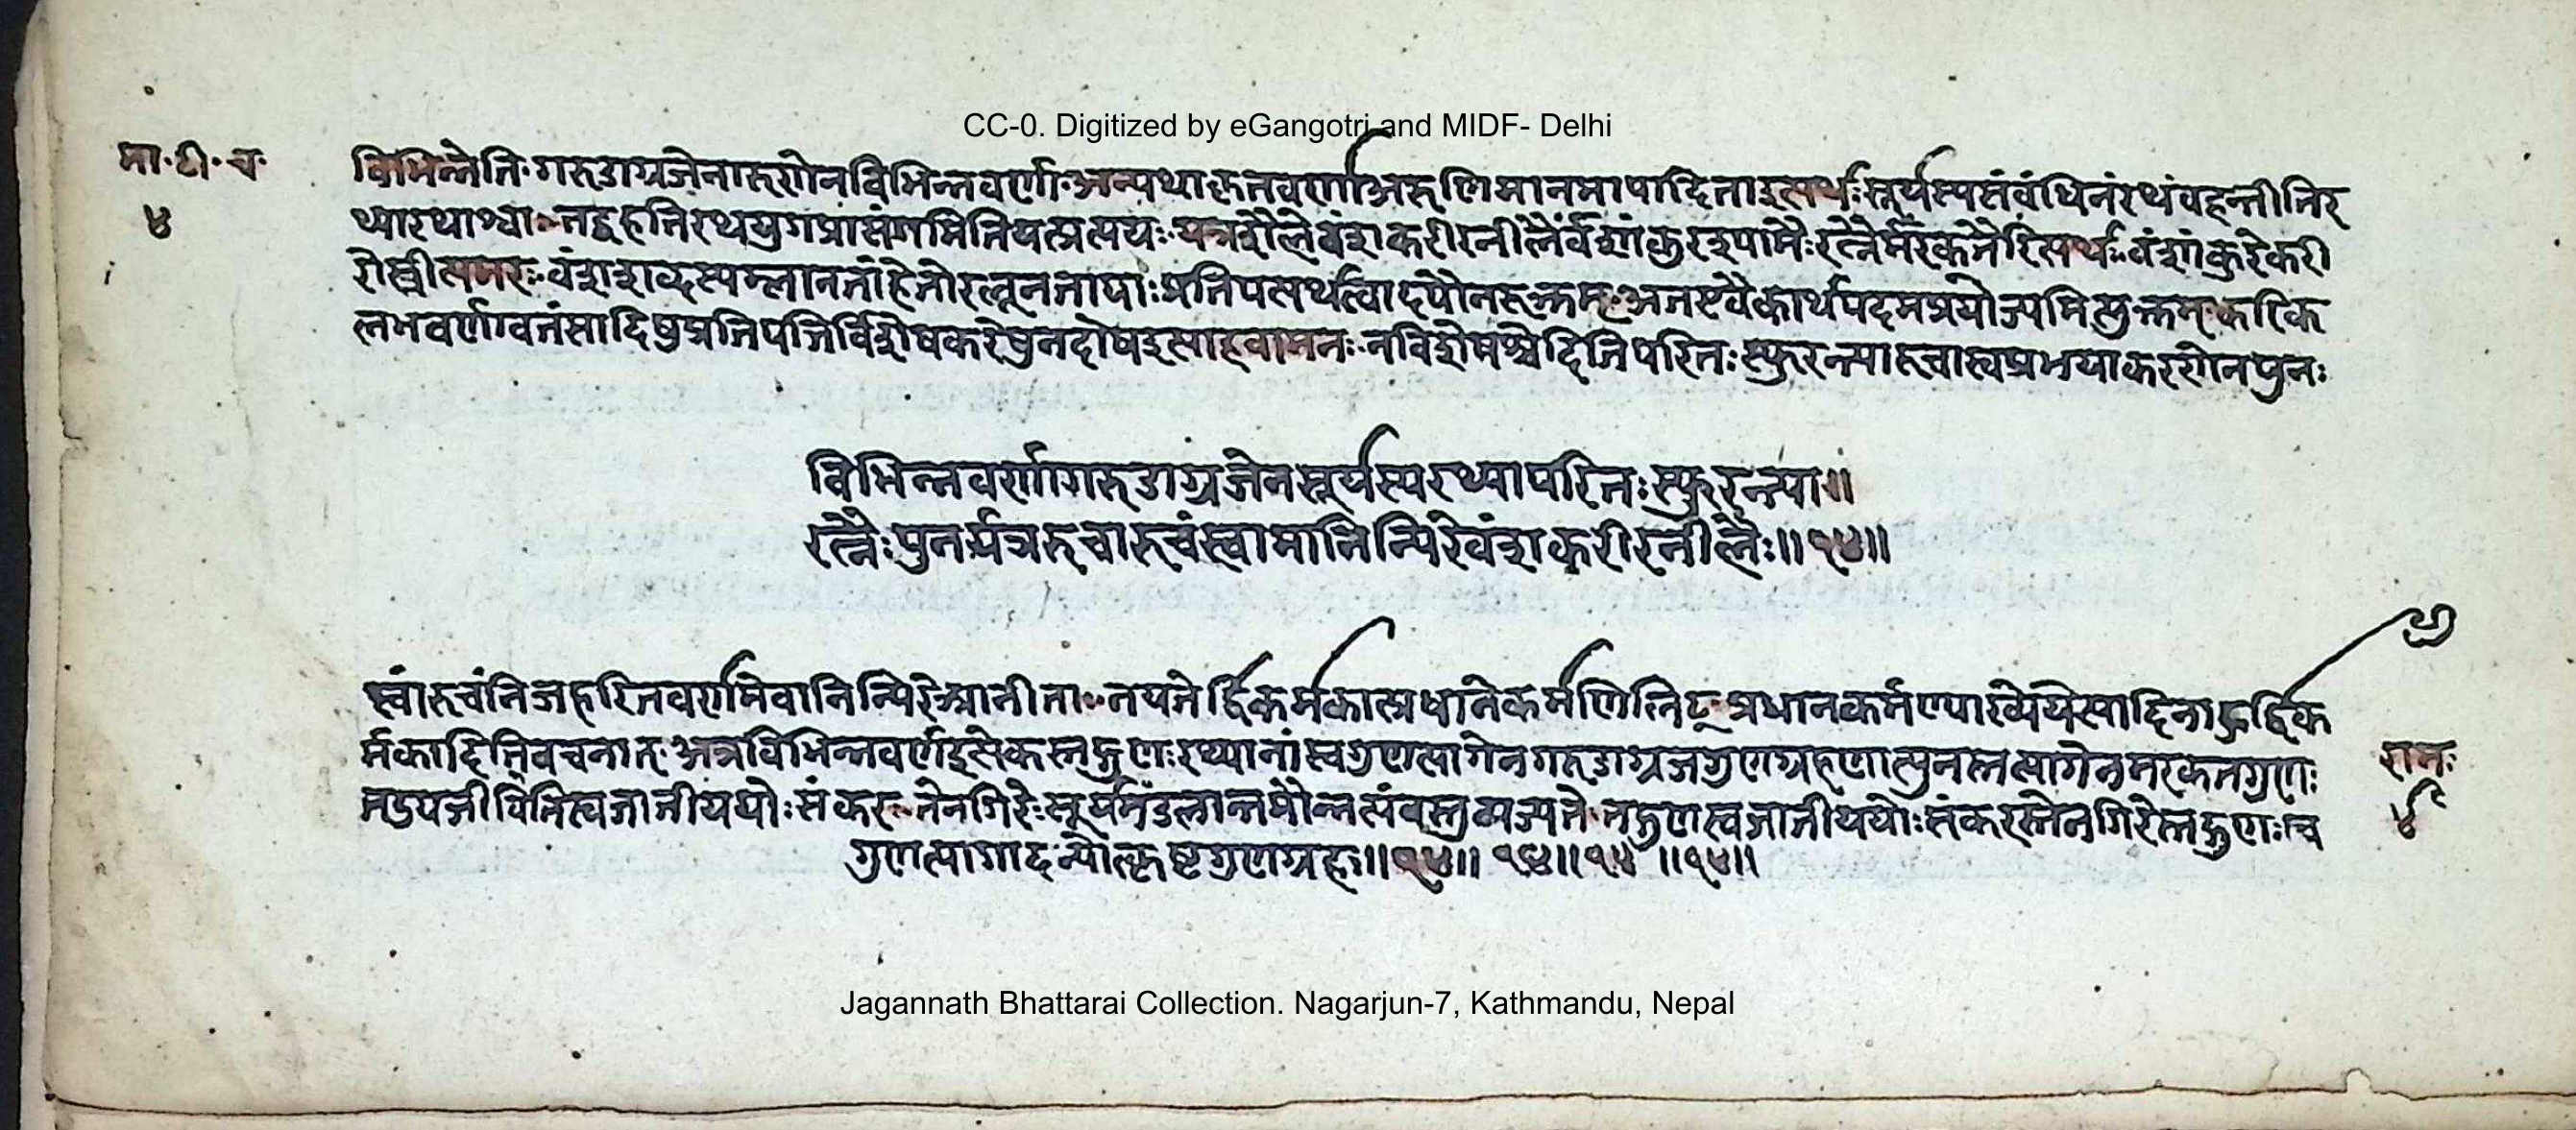 CC-0. Digitized by eGangotri and MIDF- Delhi
मा॰टी॰च॰
४
विभिन्नेति॰गरुडाग्रजेनारुणेनविभिन्नवर्णा॰अन्यथाकृतवर्णाअरुणिमानमापादिताइत्यर्थः॰सूर्यस्यसंवंधिनंरथंवहन्तीतिर
थ्यारथाश्वा॰तद्वहतिरथयुगप्रासंगमितियत्प्रत्ययः॰यत्रशैलेवंशकरीरनीलैर्वंशांकुरश्यामैःरत्नैर्मरकतैरित्यर्थः॰वंशांकुरेकरी
रोस्त्रीत्यमरः॰वंशशब्दस्य
प्रतिपत्यर्थत्वादपौनरुक्तम्॰
कार्थपदमप्रयोज्यमित्युक्तम्॰करिक
लभवर्णावतंसादिषुप्रतिपत्तिर्विशेषकरेषुनदोषइत्याहवामनः॰नविशेषश्चेदितिपरितःस्फुरन्त्यारुचास्वप्रभयाकरणेनपुनः
विभिन्नवर्णागरुडाग्रजेनसूर्यस्यरथ्यापरितःस्फुरन्त्या॥
रत्नैःपुनर्यत्ररुचारुचंस्वामानिन्यिरेवंशकरीरनीलैः॥१४॥
स्वांरुचंनिजहरितवर्णमेवानिन्यिरे॰आनीता॰नयतेर्द्विकर्मकात्प्रधानेकर्मणिलिट्॰प्रधानकर्मण्याख्येयेत्यादिनाद्रुर्द्विक
र्मकादितिवचनात्॰अत्रविभिन्नवर्णइत्येकस्तद्गुणःरथ्यानांस्वगुणत्यागेनगरुडाग्रजगुणग्रहणात्पुनस्तत्यागेनमरकतगुणः
तदुपजीवितित्वजातीययोःसंकरः॰तेनगिरेःसूर्यमंडलान्तमौन्नत्यंवस्तुव्यज्यते॰तद्गुणस्वजातीययोःसंकरस्तेनगिरेस्तद्गुणःस्व
गुणत्यागादन्योत्कृष्टगुणग्रहः॥१४॥ १४॥१४ ॥१४॥
राम॰
४
Jagannath Bhattarai Collection. Nagarjun-7, Kathmandu, Nepal